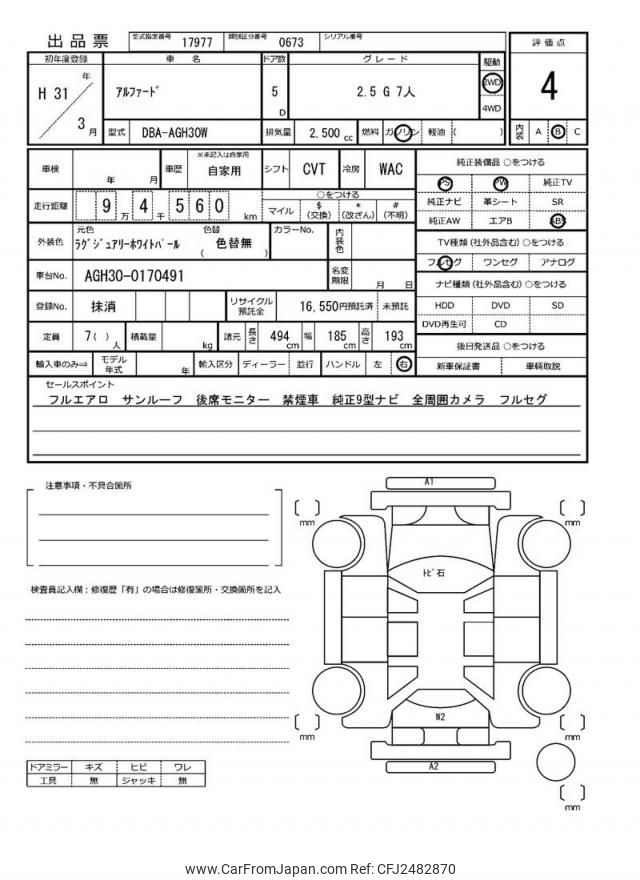 出品票 型式指定番号 17977 類別区分番号 0673 シリアル番号
評価点
4
内装 A B C
初年度登録 車名 ドア数 グレード 駆動
H 31 年 3 月
アルファード
5 D
2.5 G 7人
2WD
4WD
型式 DBA-AGH30W 排気量 2,500 cc 燃料 ガソリン 軽油 ( )
車検 年 月 車歴 ※未記入は自家用 自家用 シフト CVT 冷房 WAC
走行距離 9 万 4 千 5 6 0 km
○をつける
マイル $ (交換) * (改ざん) # (不明)
外装色 元色 ラグジュアリーホワイトパール 色替 ( 色替無 ) カラーNo. 内装色
車台No. AGH30-0170491 名変期限 月 日
登録No. 抹消 リサイクル預託金 16,550円預託済 未預託
定員 7( ) 人 積載量 kg 諸元 長さ 494 cm 幅 185 cm 高さ 193 cm
輸入車のみ⇒ モデル年式 年 輸入区分 ディーラー 並行 ハンドル 左 右
純正装備品 ○をつける
PS PW 純正TV
純正ナビ 革シート SR
純正AW エアB ABS
TV種類 (社外品含む) ○をつける
フルセグ ワンセグ アナログ
ナビ種類 (社外品含む) ○をつける
HDD DVD SD
DVD再生可 CD
後日発送品 ○をつける
新車保証書 車輌取説
セールスポイント
フルエアロ サンルーフ 後席モニター 禁煙車 純正9型ナビ 全周囲カメラ フルセグ
注意事項・不具合箇所
検査員記入欄：修復歴「有」の場合は修復箇所・交換箇所を記入
A1
mm
mm
トビ石
W2
mm
mm
A2
mm
ドアミラー キズ ヒビ ワレ
工具 無 ジャッキ 無
www.CarFromJapan.com Ref: CFJ2482870